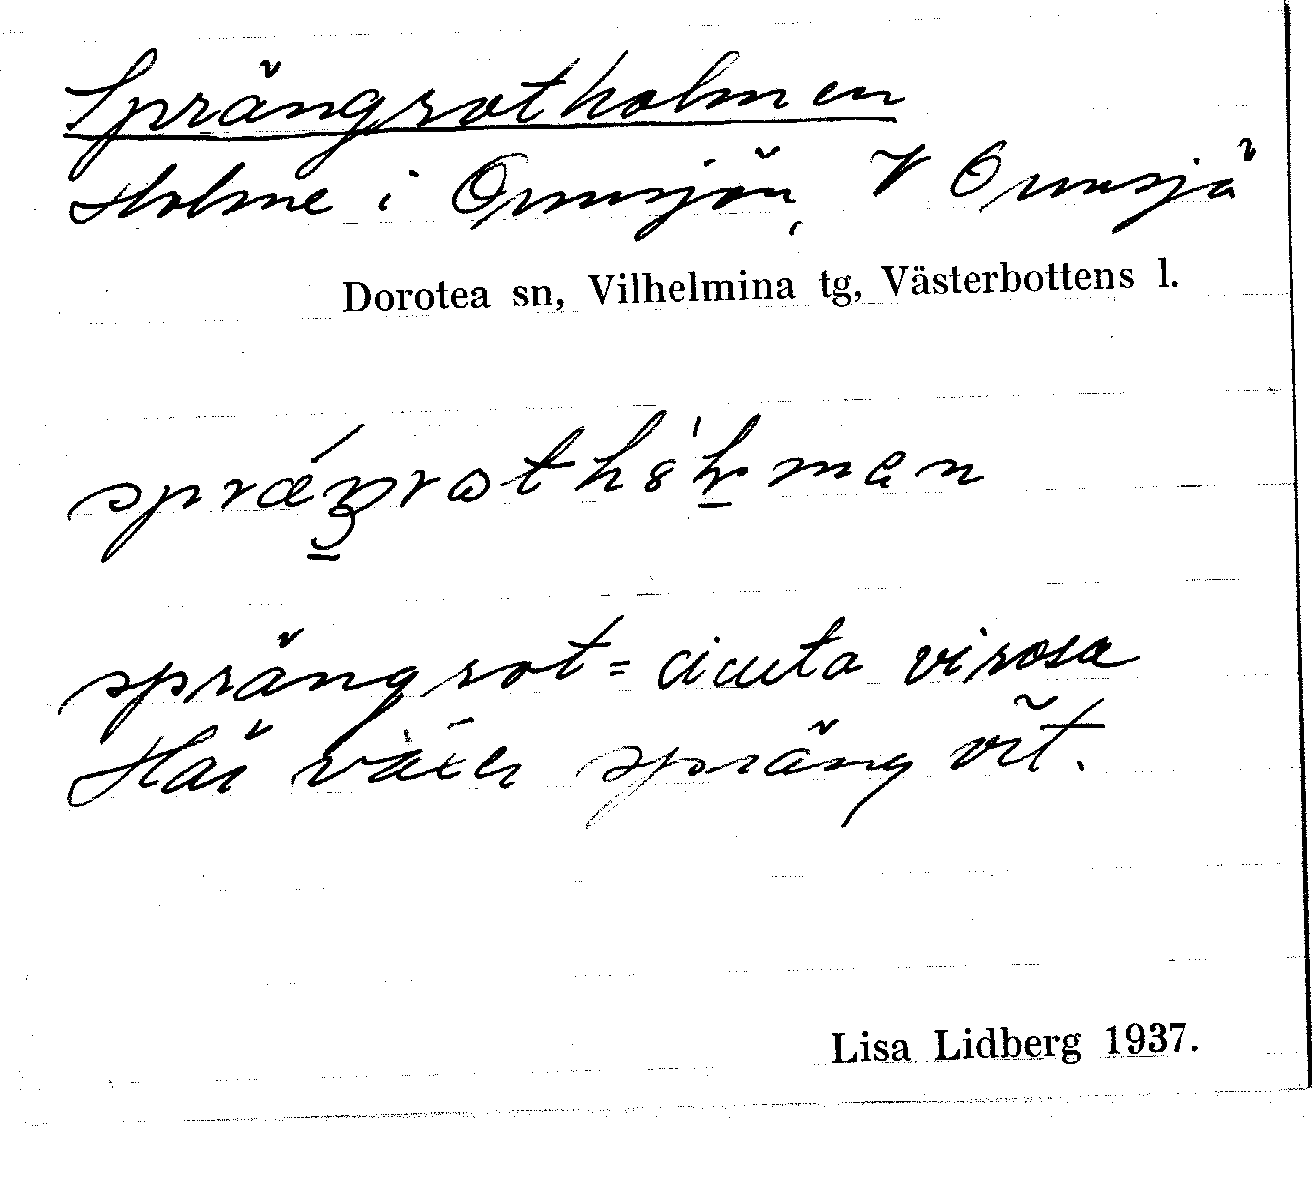 Sprängrotholmen
Holme i Ormsjön, V Ormsjö
Dorotea sn, Vilhelmina tg, Västerbottens l.
sprängrot = cicuta virosa
Här växer sprängört.
Lisa Lidberg 1937.